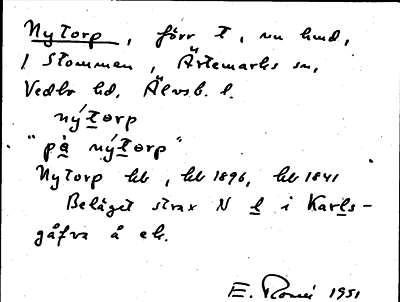 Nytorp, förr t, nu hmd,
/ Stommen, Ärtemarks sn,
Vedbo hd, Älvsb. l.
nýtorp
"på nýtorp"
Nytorp kb, kb 1896, kb 1841
Beläget strax N l i Karls-
gåfva å ek.
E. 1951